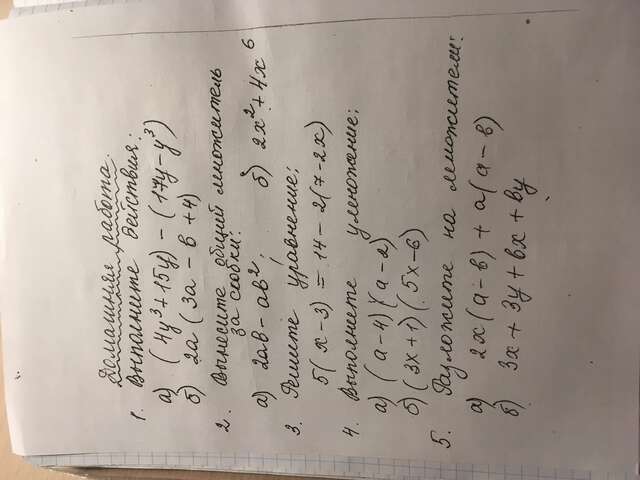 Домашняя работа.
1. Выполните действия:
а) (4y³+15y) – (17y–y³)
б) 2a (3a – b +4)
2. Вынесите общий множитель
за скобки:
а) 2ab – ab²; б) 2x² + 4x⁶
3. Решите уравнение;
5(x–3) = 14 – 2(7–2x)
4. Выполните умножение;
а) (a–4)(a–2)
б) (3x+1)(5x–6)
5. Разложите на множители:
а) 2x(a–b) + a(a–b)
б) 3x + 3y + bx + by